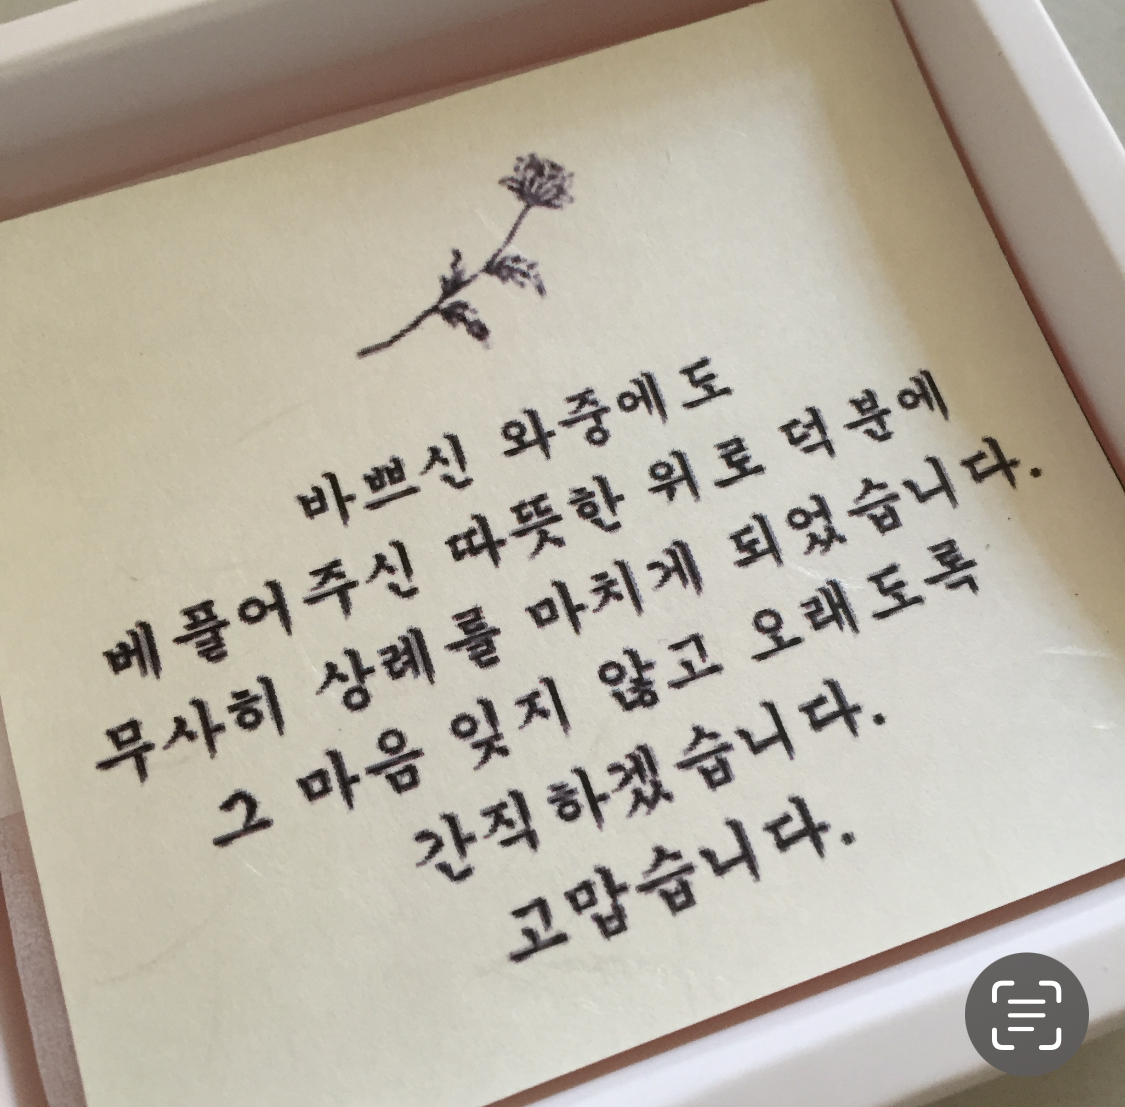 바쁘신 와중에도
베풀어주신 따뜻한 위로 덕분에
무사히 상례를 마치게 되었습니다.
그 마음 잊지 않고 오래도록
간직하겠습니다.
고맙습니다.